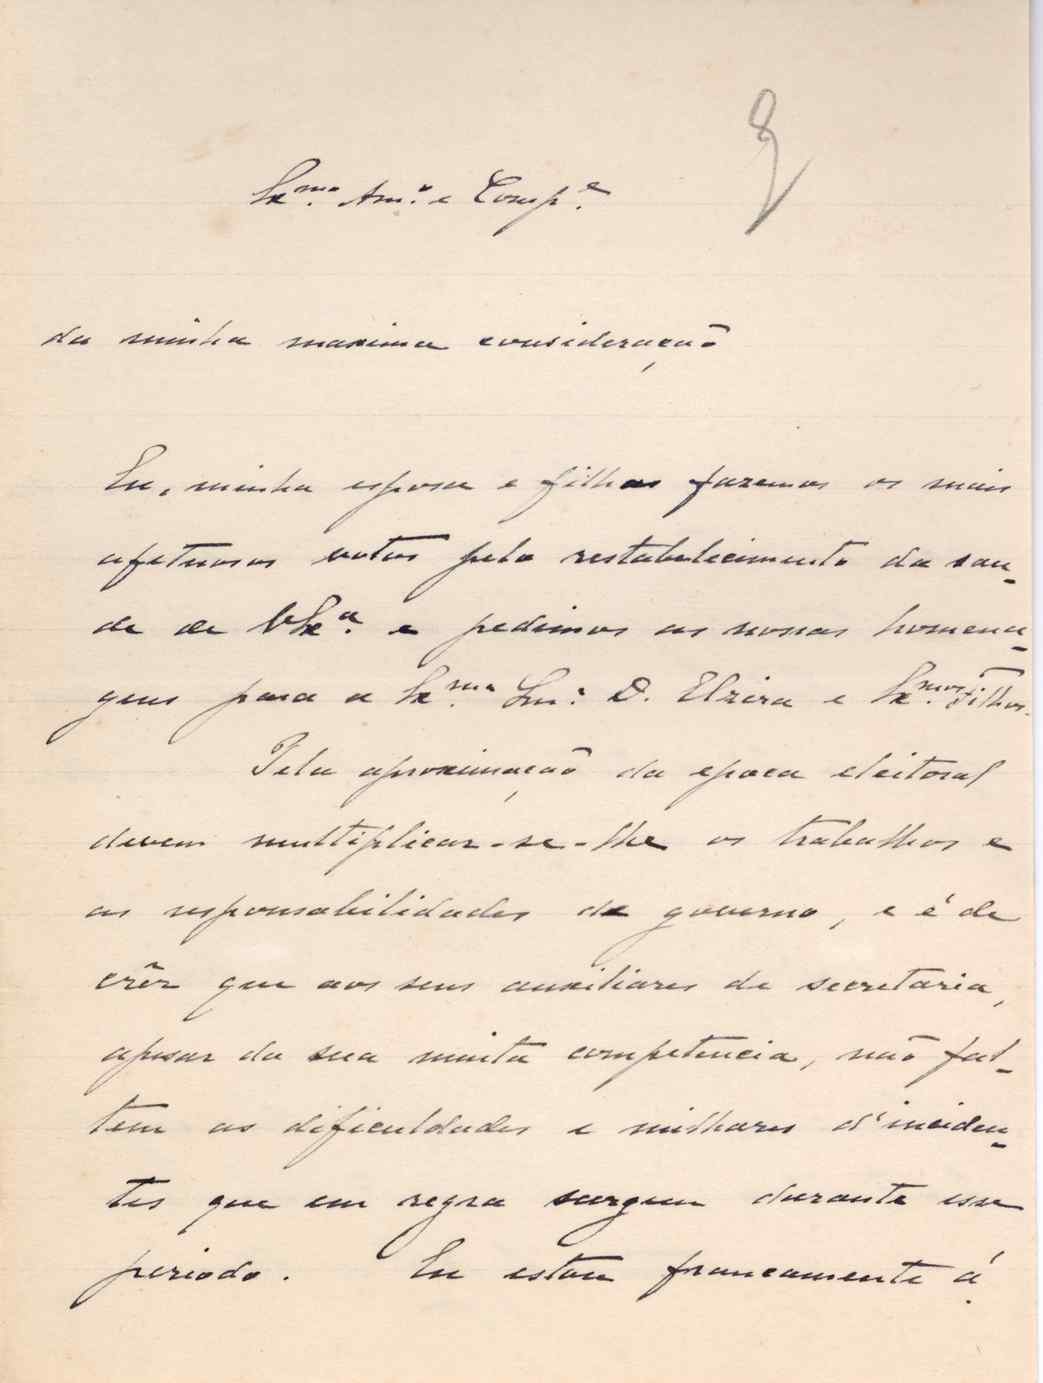 Ex.mo Am.o e Comp.e
da minha maxima consideração
Eu, minha esposa e filhas fazemos os mais
afetuosos votos pelo restabelecimento da sau-
de de VEx.a e pedimos as nossas homena-
gens para a Ex.ma Snr.a D. Elzira e Ex.mos filhos.
Pela aproximação da epoca eleitoral
devem multiplicar-se-lhe os trabalhos e
as responsabilidades de governo, e é de
crêr que aos seus auxiliares de secretaria,
apesar da sua muita competencia, não fal-
tem as dificuldades e milhares d'inciden-
tes que em regra surgem durante esse
periodo. Eu estou francamente á